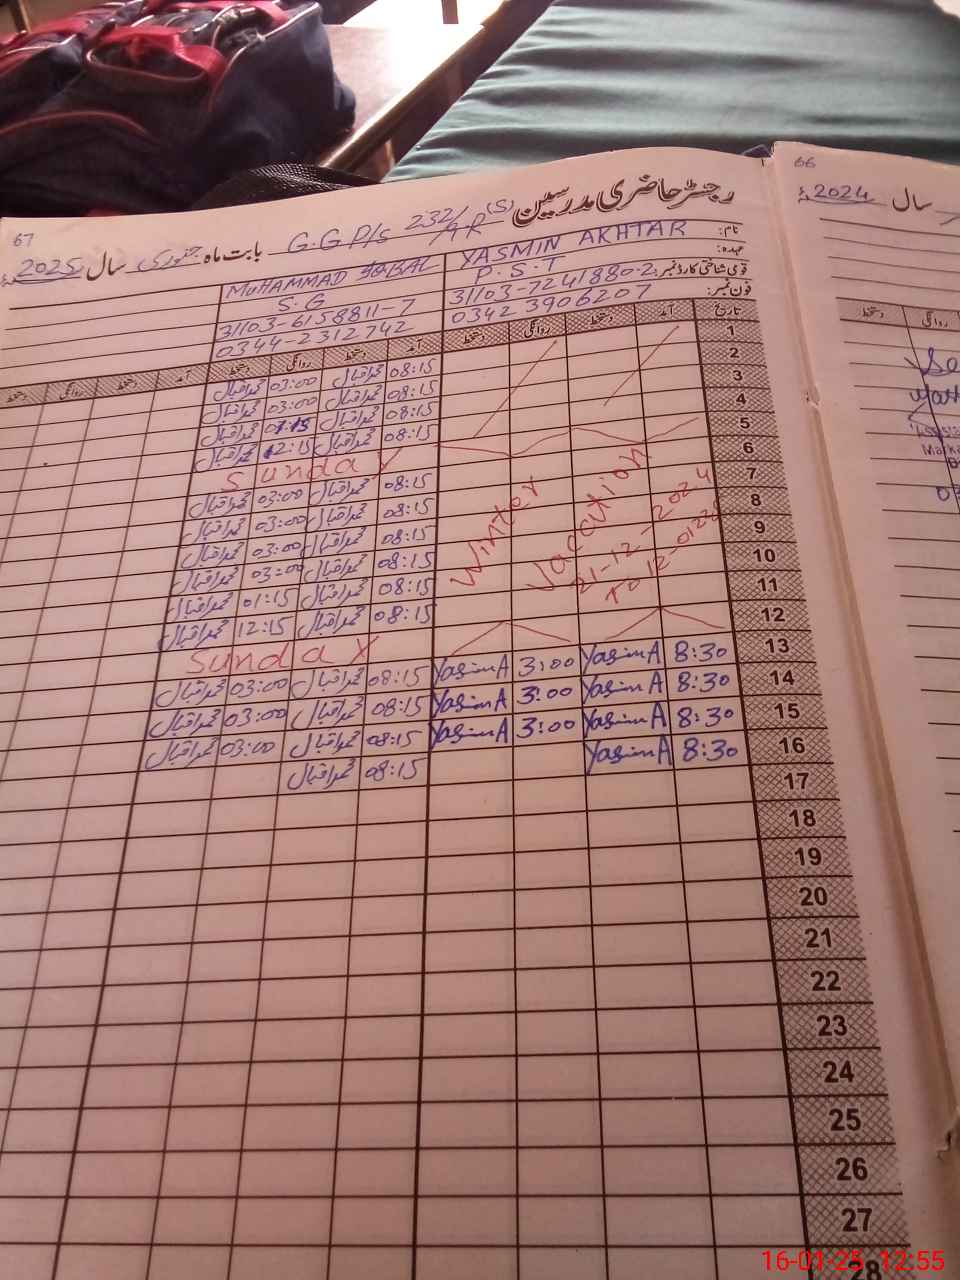 67
رجسٹر حاضری مدرسین (S) G.G P/s 232/9R بابت ماہ جنوری سال 2025ء
نام: YASMIN AKHTAR MUHAMMAD IQBAL
عہدہ: P.S.T S.G
قومی شناختی کارڈ نمبر: 31103-7241880-2 31103-6158811-7
فون نمبر: 0342 3906207 0344-2312742
تاریخ آمد دستخط روانگی دستخط آمد دستخط روانگی دستخط آمد دستخط روانگی دستخط
1 08:15 محمد اقبال 03:00 محمد اقبال
2 08:15 محمد اقبال 03:00 محمد اقبال
3 08:15 محمد اقبال محمد اقبال
4 08:15 محمد اقبال 12:15 محمد اقبال
5 Sunday
6 08:15 محمد اقبال 03:00 محمد اقبال
7 08:15 محمد اقبال 03:00 محمد اقبال
8 08:15 محمد اقبال 03:00 محمد اقبال
9 08:15 محمد اقبال 03:00 محمد اقبال
10 08:15 محمد اقبال 01:15 محمد اقبال
11 08:15 محمد اقبال 12:15 محمد اقبال
Winter Vaccation
21-12-2024
TO 12-01
12 Sunday
13 8:30 YasimA 3:00 YasimA 08:15 محمد اقبال 03:00 محمد اقبال
14 8:30 YasimA 3:00 YasimA 08:15 محمد اقبال 03:00 محمد اقبال
15 8:30 YasimA 3:00 YasimA 08:15 محمد اقبال 03:00 محمد اقبال
16 8:30 YasimA 08:15 محمد اقبال
17
18
19
20
21
22
23
24
25
26
27
28
66
سال 2024ء
روانگی دستخط
16-01-25 12:55